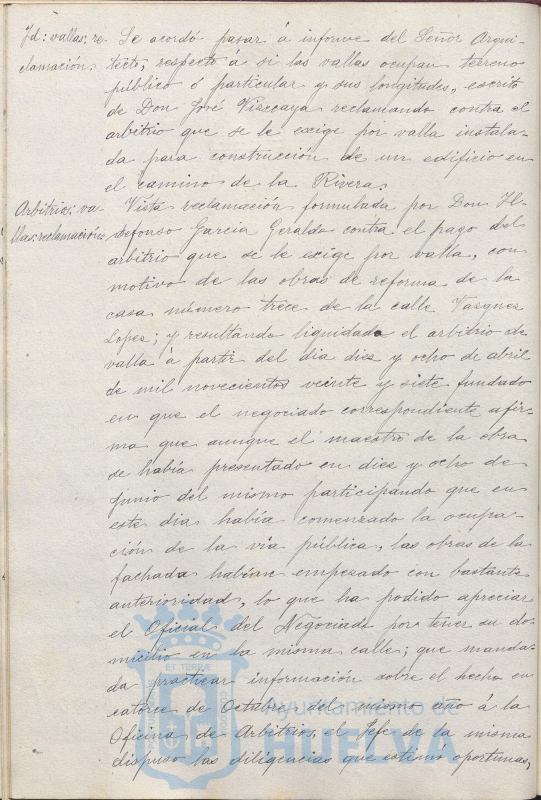 Id: vallas: re-
clamación.
Se acordó pasar á informe del Señor Arqui-
tecto, respecto á si las vallas ocupan terreno
público ó particular y sus longitudes, escrito
de Don José Vizcaya reclamando contra el
arbitrio que se le exige por valla instala-
da para construcción de un edificio en
el camino de la Rivera.
Arbitrios: va-
llas: reclamación.
Vista reclamación formulada por Don Il-
defonso Garcia Geraldo contra el pago del
arbitrio que se le exige por valla, con
motivo de las obras de reforma de la
casa número trece de la calle Vazquez
Lopez; y resultando liquidado el arbitrio de
valla á partir del dia diez y ocho de abril
de mil novecientos veinte y siete, fundado
en que el negociado correspondiente afir-
ma que aunque el maestro de la obra
se habia presentado en diez y ocho de
Junio del mismo participando que en
este dia habia comenzado la ocupa-
ción de la via pública, las obras de la
fachada habian empezado con bastante
anterioridad, lo que ha podido apreciar
el Oficial del Negociado por tener su do-
micilio en la misma calle; que manda-
da practicar información sobre el hecho en
catorce de Octubre del mismo año á la
Oficina de Arbitrios, el Jefe de la misma
dispuso las diligencias que estimó oportunas,
Ayuntamiento de
HUELVA